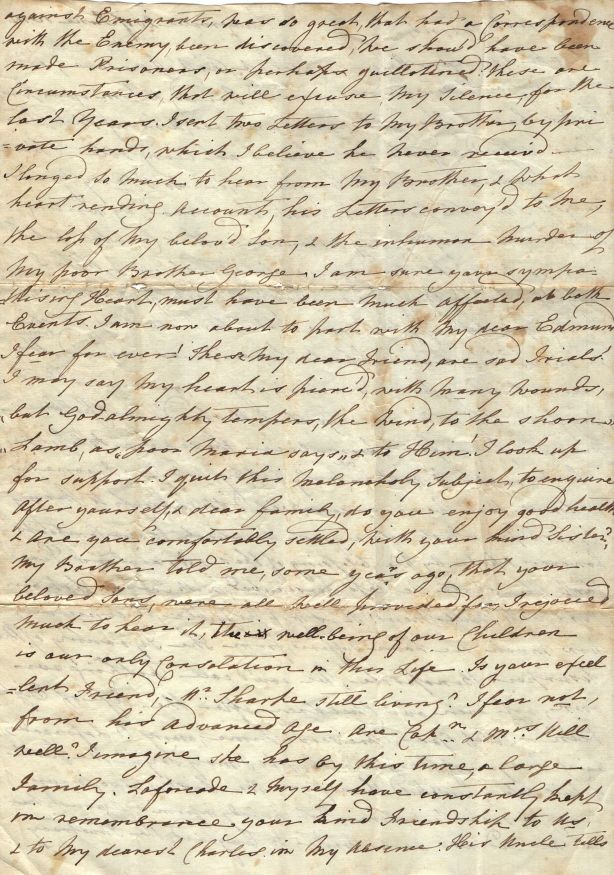 against Emigrants, was so great, that had a Correspondence
with the Enemy, been discovered, We should have been
made Prisoners, or perhaps guillotined. These are
Circumstances, that will excuse, My Silence, for the
last Years. I sent two Letters to My Brother, by pri
=vate hands, which I believe he never receiv'd —
I longed so much to hear from My Brother, & What
heart rending Accounts, his Letters convey'd to me,
the loss of My belov'd Son, & the inhuman Murder of
My poor Brother George. I am sure your sympa
thising Heart, must have been much affected, at both
Events. I am now about to part with My dear Edmund
I fear for ever! These My dear Friend, are sad Trials!
I may say My heart is pierc'd, with many Wounds,
but God almighty tempers, the Wind, to the shorn
Lamb, as "poor Maria says" & to Him! I look up
for support. I quit this Melancholy Subject, to enquire
After yourself, & dear family, do you enjoy good health
& are you comfortably settled, with your kind Sister?
My Brother told me, some years ago, that your
beloved Sons, were all well provided for, I rejoiced
much to hear it, the well-being of our Children
is our only Consolation in this Life. Is your excel
=lent Friend, Mr. Sharpe still living? I fear not,
from his advanced Age. Are Capn. & Mrs Hill
well? I imagine she has by this time, a large
Family. Laforcade & Myself have constantly kept
in remembrance your kind Friendship to Us,
& to My dearest Charles in My absence. His Uncle tells